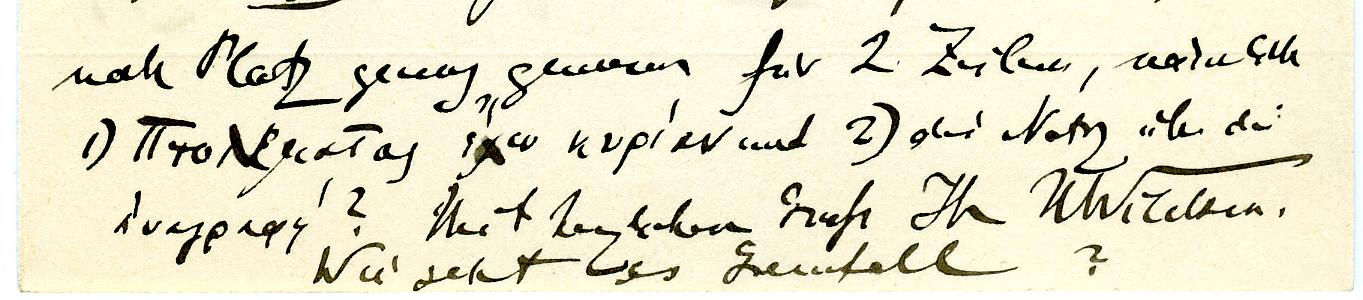 noch Platz genug gewesen für 2 Zeilen, nämlich
1) ἔχω κυρίαν und 2) die Notiz über die
ἀναγραφή? Mit herzlichem Gruß Ihr UWilcken.
Wie geht es Grenfell ?